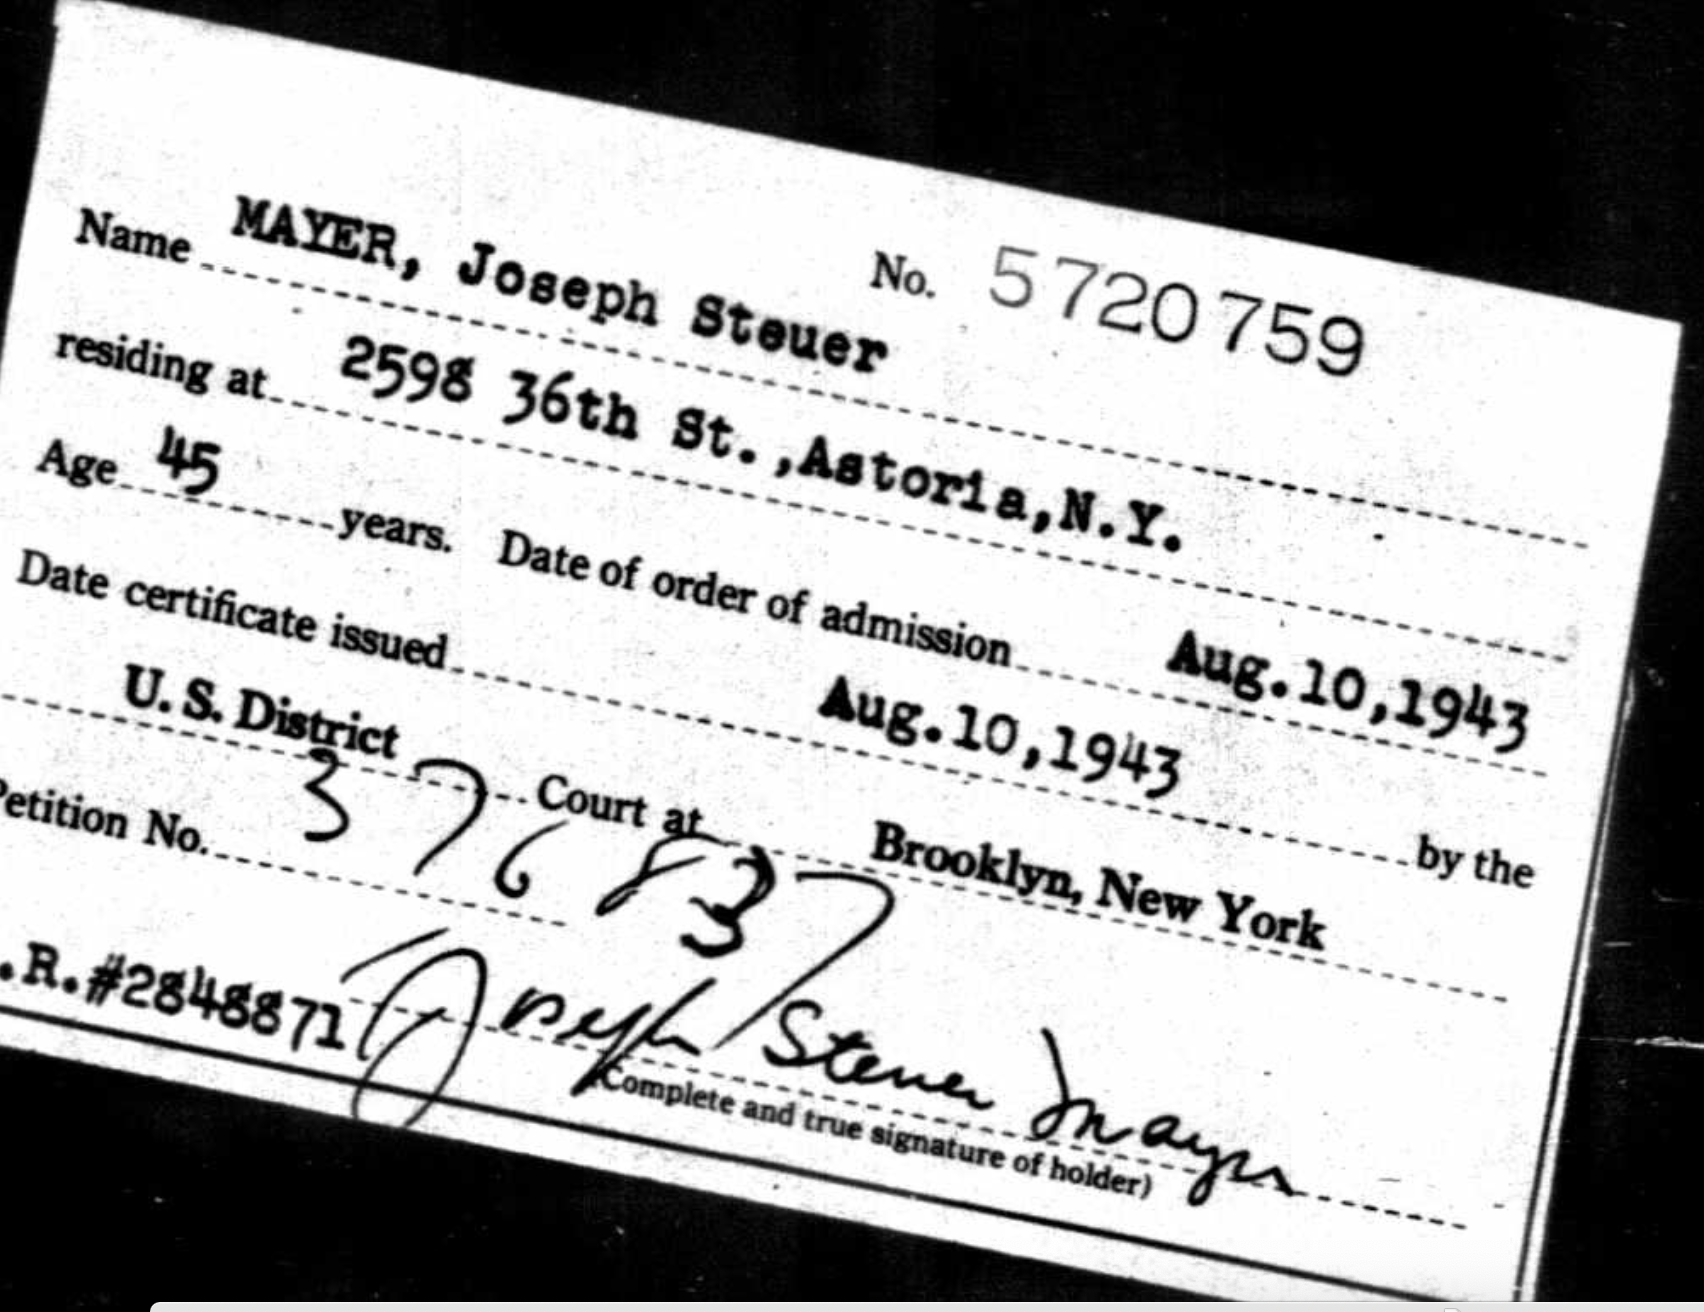 No. 5720759
Name MAYER, Joseph Steuer
residing at 2598 36th St.,Astoria,N.Y.
Age 45 years. Date of order of admission Aug.10,1943
Date certificate issued Aug.10,1943 by the
U. S. District Court at Brooklyn, New York
Petition No. 376837
.R.#2848871 Joseph Steuer Mayer
(Complete and true signature of holder)